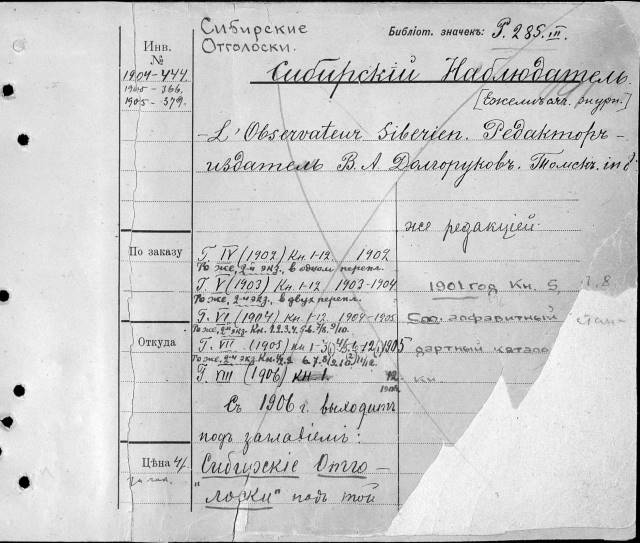 Сибирские
Отголоски.
Библіот. значекъ: P. 285. III.
Инв.
№
1904-444.
1905-366.
1905-379.
Сибирскій Наблюдатель.
[Ежемѣсяч. журн.]
- L'Observateur Siberien. Редакторъ-
издатель В. А. Долгоруковъ. Томскъ. in 8
же редакціей.
По заказу
Г. IV (1902) Кн. 1-12. 1902
То же, 2-й экз., в одном перепл.
Г. V (1903) Кн. 1-12 1903-1904
То же, 2-й экз., в двух перепл.
1901 год Кн. 5, 7, 8
Г. VI (1904) Кн. 1-12. 1904-1905
То же, 2-й экз. Кн. 2.3.4.5-6. 7/8. 9/10.
Соо. алфавитный стан-
Откуда
Г. VII (1905) Кн. 1-3 12 1905
То же, 2-й экз.
дартный катало
Г. VIII (1906) Кн. 1. 12. Кн
1906
Съ 1906 г. выходитъ
подъ заглавіемъ:
Цѣна 4/
за год.
Сибирскіе Отго-
"лоски" подъ той